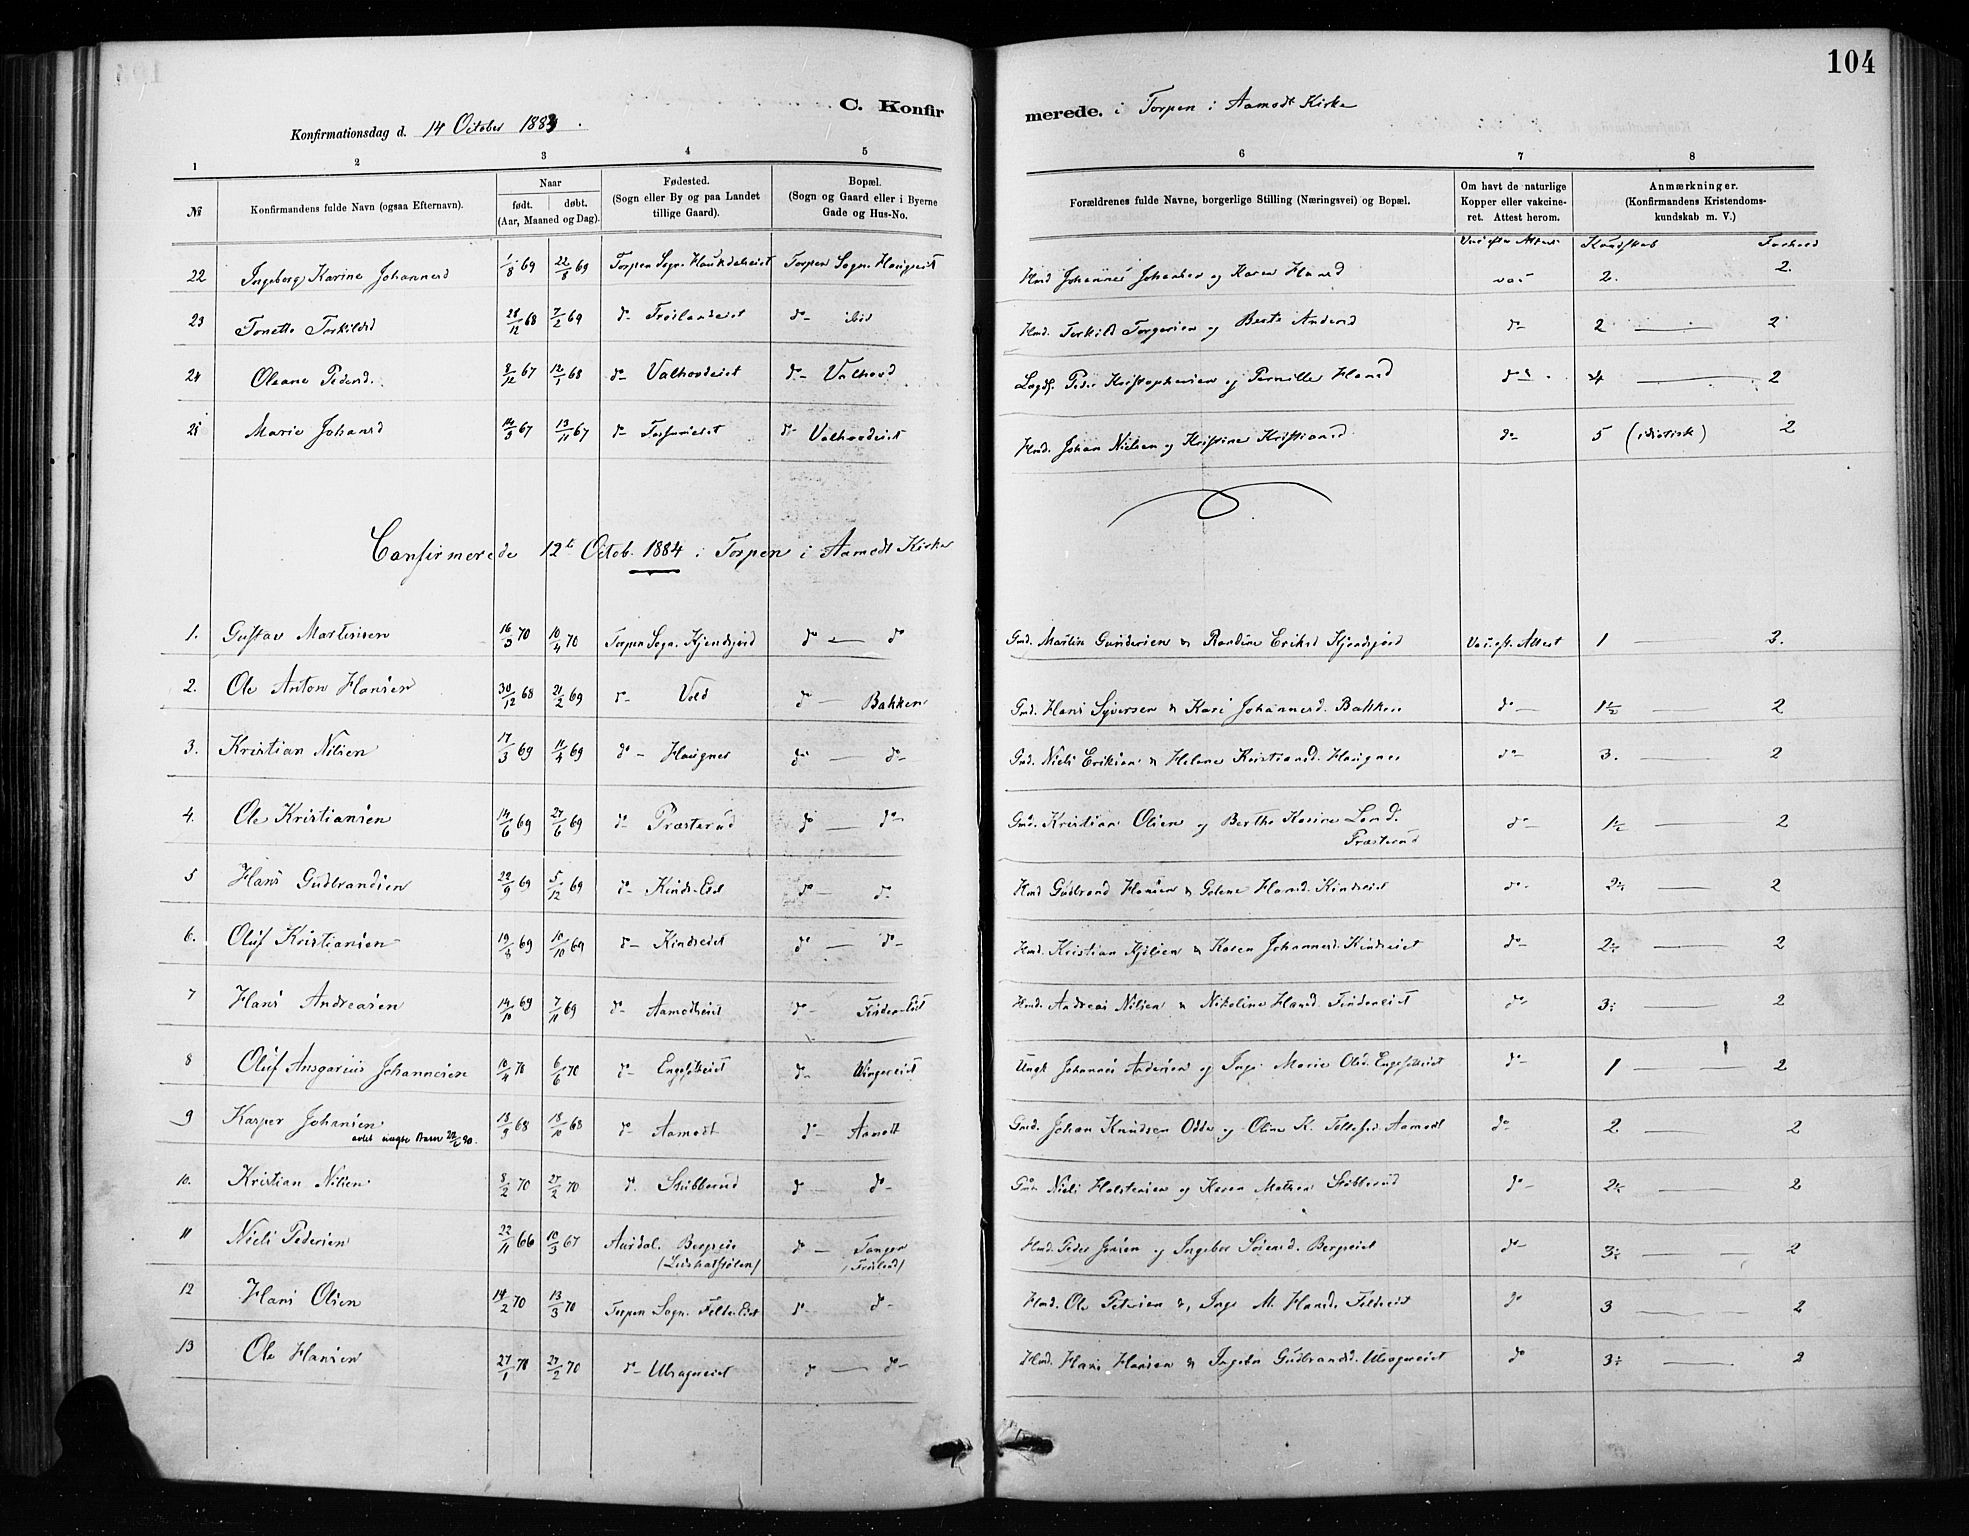 104
C. Konfirmerede. i Torpen i Aamodt Kirke
Konfirmationsdag d. 14 October 1883.
1 2 3 4 5 6 7 8
№ Konfirmandens fulde Navn (ogsaa Efternavn). Naar født. døbt. (Aar, Maaned og Dag). Fødested. (Sogn eller By og paa Landet tillige Gaard). Bopæl. (Sogn og Gaard eller i Byerne Gade og Hus-No. Forældrenes fulde Navne, borgerlige Stilling (Næringsvei) og Bopæl. Om havt de naturlige Kopper eller vakcineret. Attest herom. Anmærkninger. (Konfirmandens Kristendomskundskab m. V.)
Kundskab Forhold
22 Ingeborg Karine Johannesd 1/8 69 22/8 69 Torpen Sogn. Torpen Sogn. Haugseiet Hmd Johannes Johansen og Karen Hansd vac 2. 2.
23 Tonette Torkildsd 28/12 68 7/2 69 do Frøslandeiet do ibid Hmd. Torkild Torgersen og Berte Andersd do 2 — 2
24 Oleane Pedersd. 8/12 67 12/1 68 do Valhovdeiet do Valhovd Lægdsl. Peder Kristophersen og Pernille Hansd do 4 — 2
25 Marie Johansd 14/9 67 13/11 67 do do Valhovdeiet Hmd. Johan Nielsen og Kristine Kristiansd do 5 (idiotisk) 2
Confirmerede 12te Octob. 1884 i Torpen i Aamodt Kirke
1. Gustav Martinsen 16/3 70 10/4 70 Torpen Sogn. Kjendsjord do — do Gmd. Martin Gundersen & Randine Eriksd Kjendsjord Vac. eft. Attest 1 — 2.
2. Ole Anton Hansen 30/12 68 21/2 69 do Vold do — Bakken Gmd. Hans Syversen & Kari Johannesd. Bakken do 1½ — 2
3. Kristian Nilsen 17/3 69 11/4 69 do Haugner do — do Gmd. Niels Eriksen & Helene Kristiansd. Haugner do 3. — 2
4. Ole Kristiansen 14/6 69 27/6 69 do Præsterud do — do Gmd. Kristian Olsen og Berthe Karine Larsd. Præsterud do 1½ — 2
5 Hans Gudbrandsen 22/9 69 5/12 69 do Kinds-Eiet do — do Hmd Gudbrand Hansen & Golene Hansd. Kindseiet do 2½ — 2
6. Oluf Kristiansen 19/8 69 10/10 69 do Kindseiet do — do Hmd. Kristian Kjølsen & Karen Johannesd. Kindseiet do 2½ — 2
7 Hans Andreasen 14/10 69 7/11 69 do Aamodteiet do Finden-Eiet Hmd. Andreas Nilsen & Nikoline Hansd. Findeneiet do 3½ — 2
8 Oluf Ansgarius Johannesen 10/4 70 6/6 70 do Engesetheiet do Ungk Johannes Andersen og Inge Marie Olsd. Engesetheiet do 1 — 2
9 Karper Johansen 13/9 68 18/10 68 do Aamodt do Aamodt Gmd. Johan Knudsen Odde og Oline K. Tollefsd. Aamodt do 2 — 2
avlet uægte Barn 22/6 90.
10. Kristian Nilsen 8/2 70 27/2 70 do Skibberud do — do Niels Halstensen og Karen Mathea Skibberud do 2½ — 2
11 Niels Pedersen 22/11 66 10/3 67 Aurdal. Bergseie do — Tangen Hmd. Peder Jensen og Ingebor Sørensd. Bergseiet do 3½ — 2
12 Hans Olsen 14/2 70 13/3 70 Torpen Sogn. Felde-Eiet do — do Hmd. Ole Petersen & Inge M. Hansd. Feldeeiet do 3 — 2
13 Ole Hansen 27/1 70 27/2 70 do do — do Hmd. Hans Hansen & Ingebor Gudbrandsd. do 3½ — 2